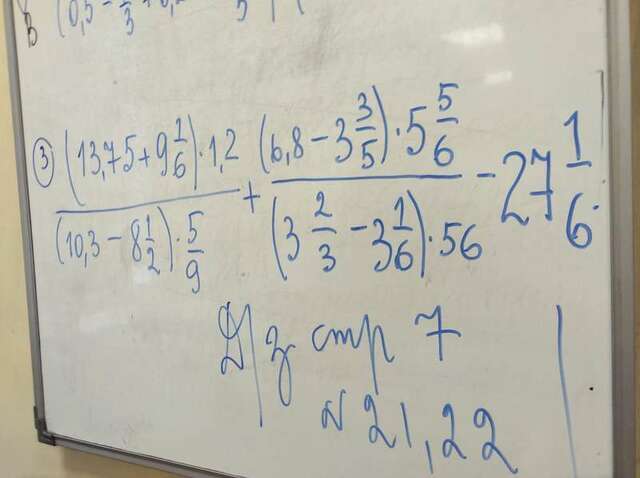 (0,5 -
③ (13,75 + 9 1/6) · 1,2 / (10,3 - 8 1/2) · 5/9 + (6,8 - 3 3/5) · 5 5/6 / (3 2/3 - 3 1/6) · 56 - 27 1/6.
Д/з стр 7
№ 21, 22